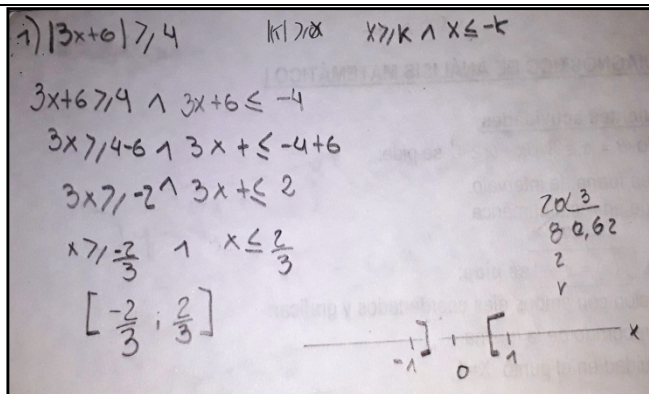 1) |3x+6| ⩾ 4    |k| ⩾ x    x ⩾ k ∧ x ≤ -k
3x+6 ⩾ 4 ∧ 3x+6 ≤ -4
3x ⩾ 4-6 ∧ 3x+ ≤ -4+6
3x ⩾ -2 ∧ 3x+ ≤ 2
x ⩾ -2/3 ∧ x ≤ 2/3
[-2/3 ; 2/3]
20 3
8 0,62
2
-1 ] 0 [ 1 x